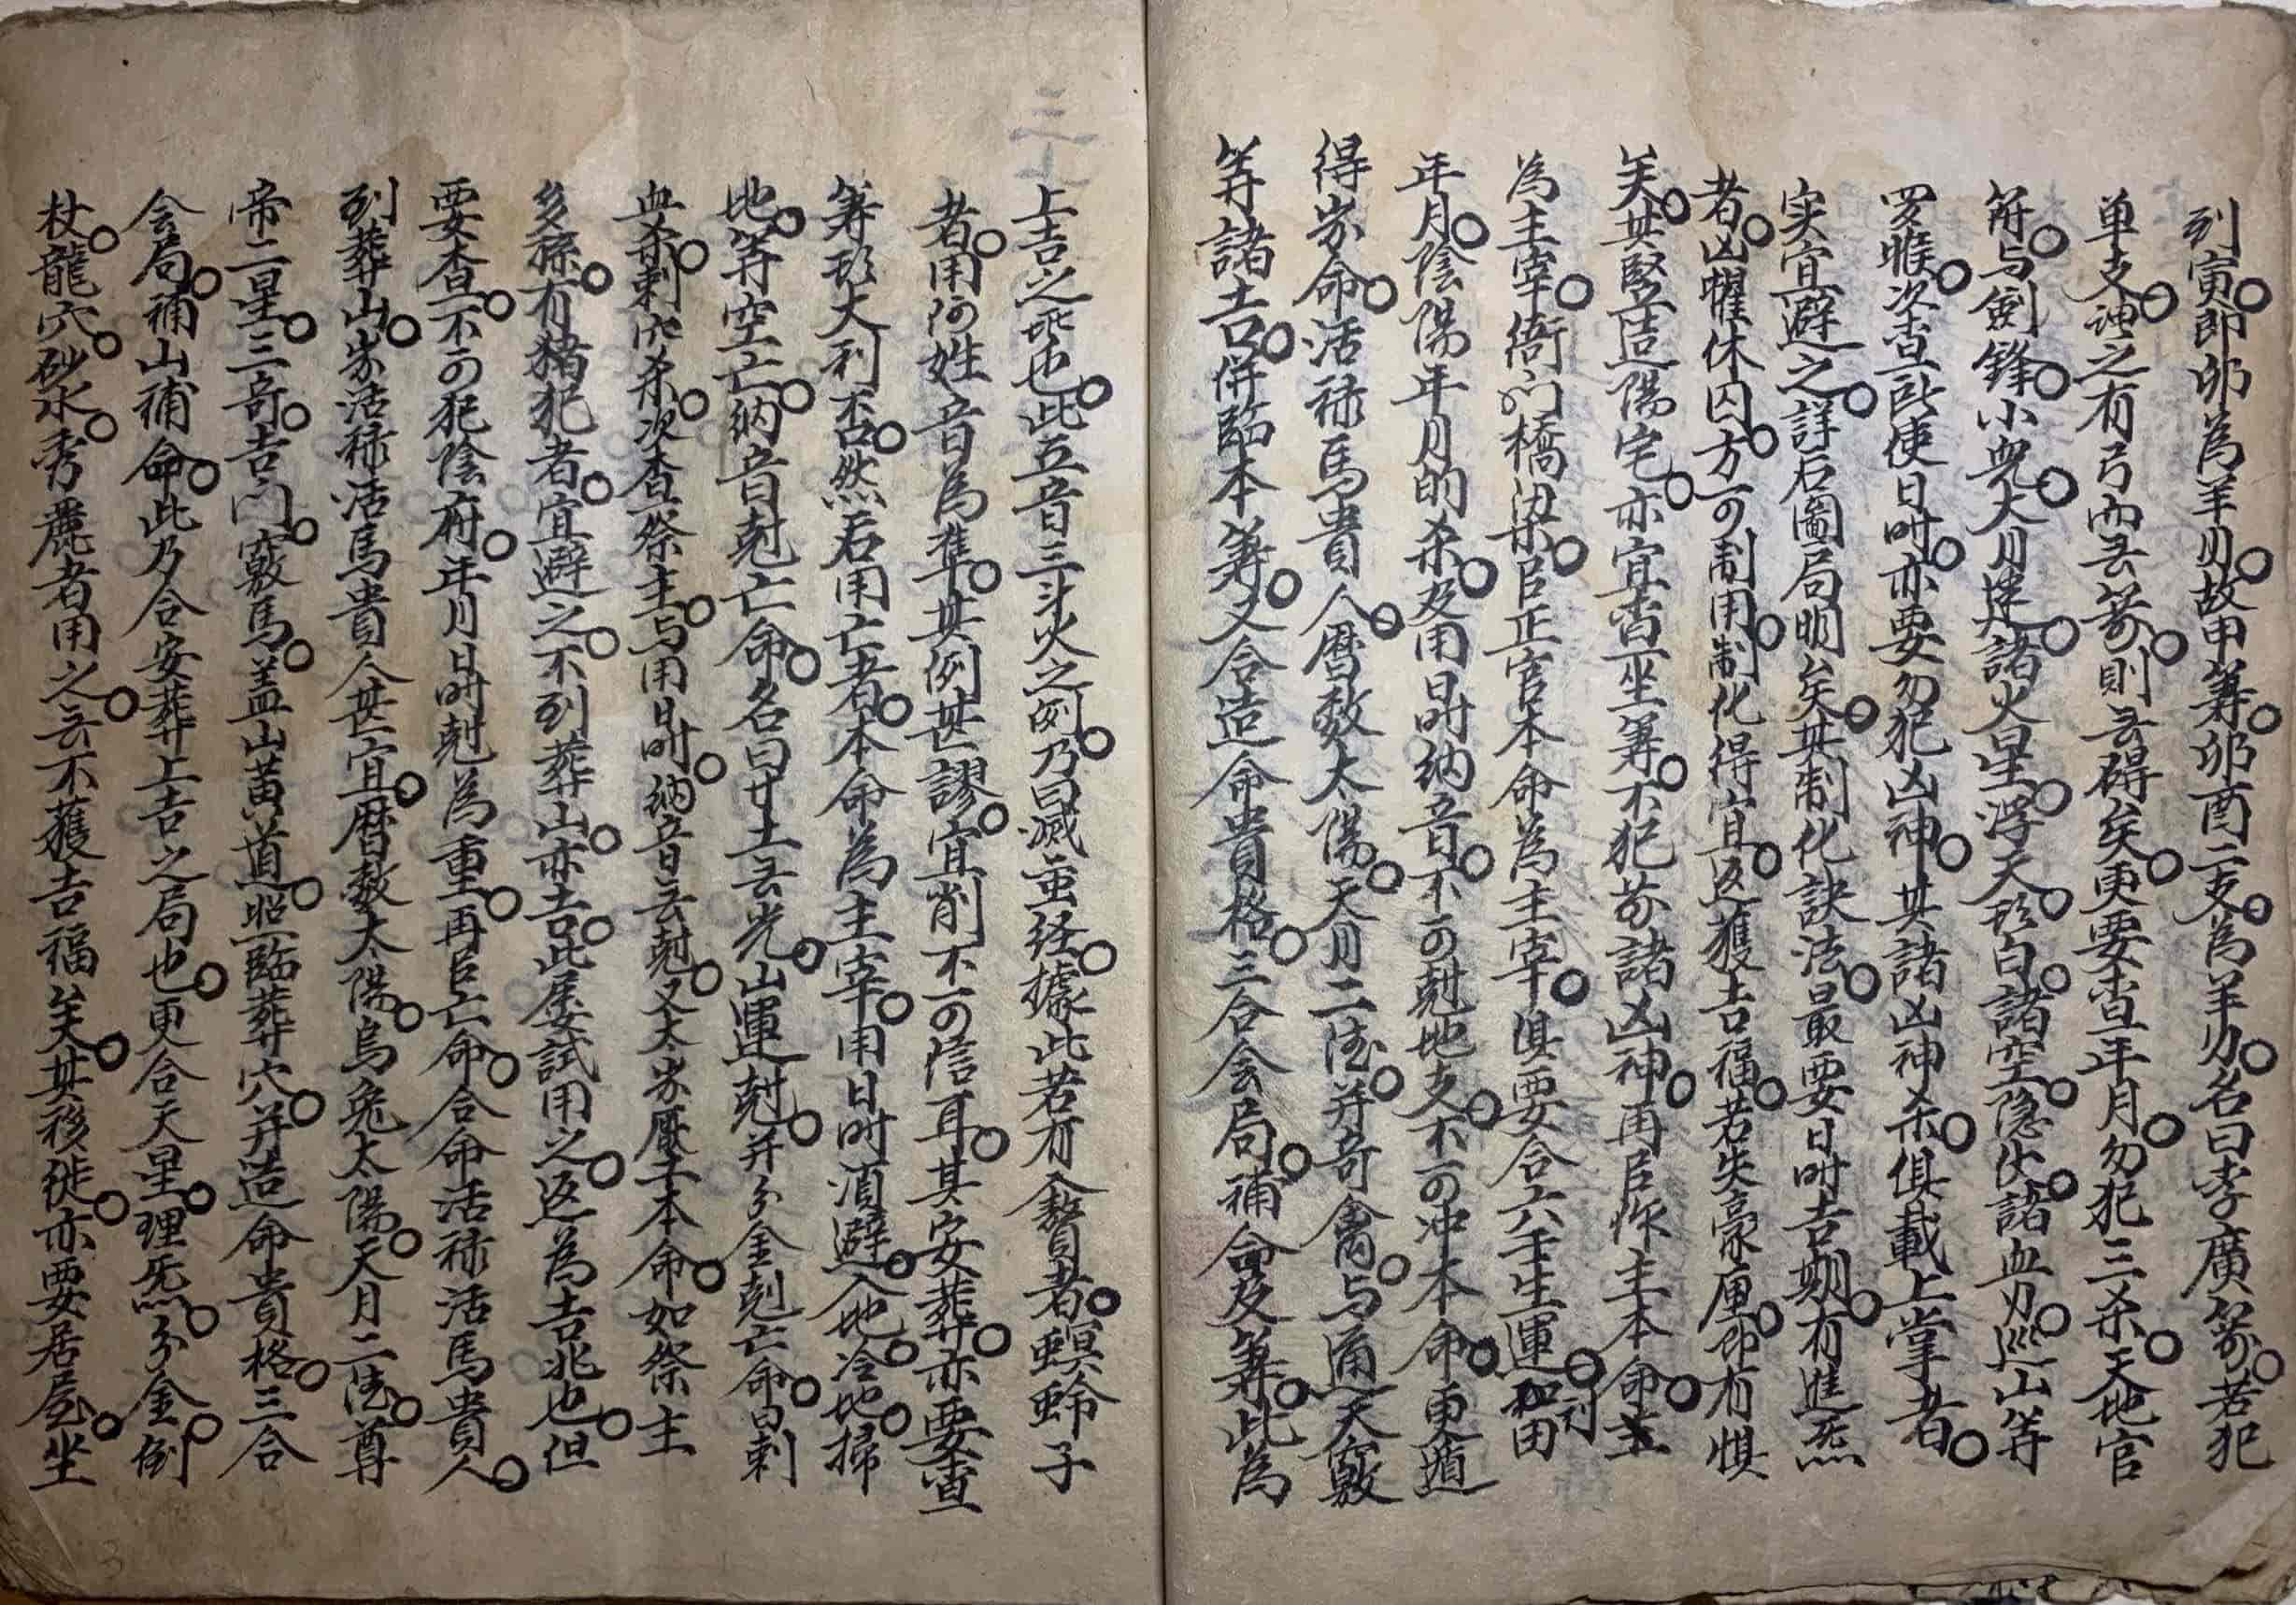 列寅。即卯為羊刃。故甲筭。卯酉二支。為羊刃。名曰李廣箭。若犯
单支。謎之有弓內无箭。則无碍矣。更要查年月。勿犯三杀。天地官
符。与劍鋒。小兒。大月建。諸火星。浮天。形白。諸空。隐伏。諸血刃。巡山等
罗睺。次查所使日时。亦要勿犯凶神。其諸凶神杀。俱載上掌者。
实宜避之。詳后圖局明矣。其制化訣法。最要日时吉期。有進炁
者。凶曜休囚。方可制用。制化得宜。返獲吉福。若失豪厘。即有惧
矣。其竪造陽宅。亦宜查坐筭。不犯前諸凶神。再臣作主本命。
為主宰。衙门橋梁。臣正官本命為主宰。俱要合六壬生運。和田
年月。陰陽年月的杀。及用日时納音。不可尅地支。不可冲本命。更遁
得岁命。活禄馬貴人。曆数太陽。天月二德。并竒禽。与通天竅
筭諸吉。併臨本筭。又合造命貴格。三合会局。補命及筭。此為
上吉之兆也。此五音三斗火之例。乃曰滅蛮経。據此若有贅者。螟蛉子
者。用何姓音為準。其例甚謬。宜削不可信耳。其安葬。亦要查
筭形大利否。然后用亡者。本命為主宰。用日时湏避。入地。冷地。掃
地。等空亡。納音尅亡命。名曰廿土无光。山運尅。并分金尅亡命。曰剌
血杀。剌穴杀。次查祭主。与用日时。納音无尅。又太岁壓本命。如祭主
多孫。有猪犯者。宜避之。不到葬山。亦吉。此屡試用之。返為吉兆也。但
要查。不可犯陰府。年月日时尅為重。再臣亡命。合命活禄活馬貴人。
到葬山。岁活禄活馬貴人甚宜。曆数太陽。烏兔太陽。天月二德。尊
帝二星。三竒。吉门。竅馬。盖山黄道。照臨葬穴。并造命貴格。三合
会局。補山補命。此乃合安葬上吉之局也。更合天星。理炁。分金。倒
杖。龍穴。砂水。秀麗者用之。无不獲吉福矣。其移徙。亦要居屋。坐